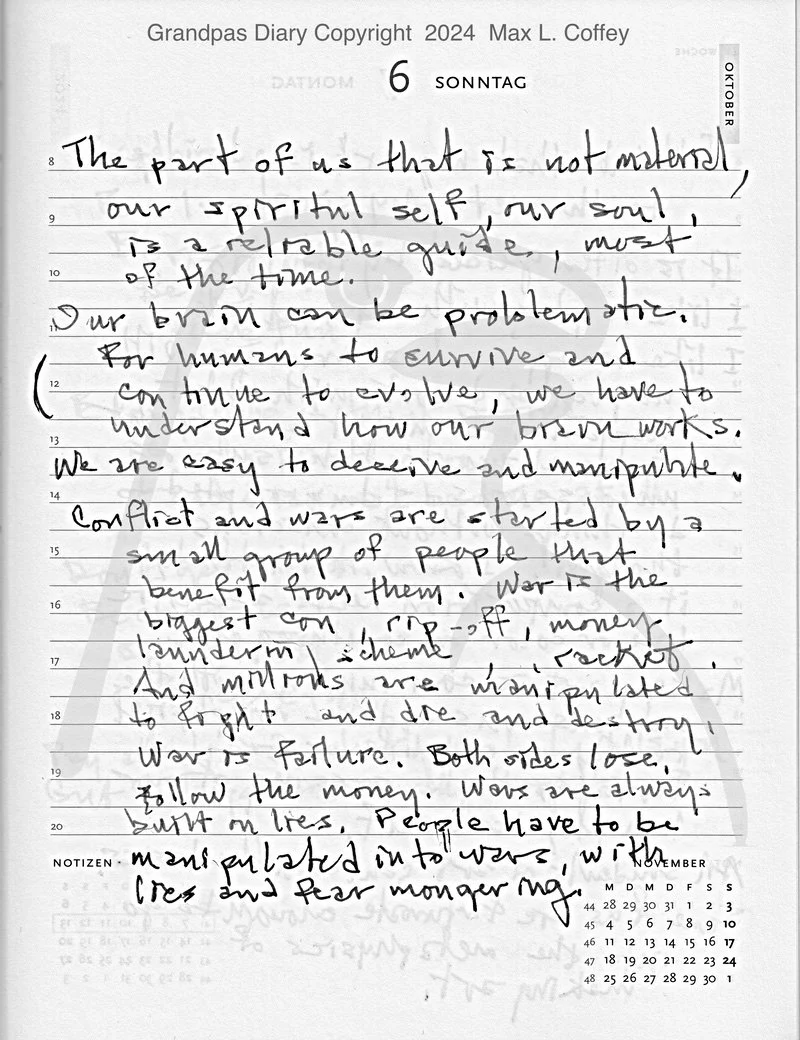 Grandpas Diary Copyright 2024 Max L. Coffey
6 SONNTAG
OKTOBER
8 The part of us that is not material,
9 our spiritul self, our soul,
is a reliable guide, most
10 of the time.
11 Our brain can be problematic.
For humans to survive and
12 continue to evolve, we have to
understand how our brain works.
13
We are easy to deceive and manipulate.
14
Conflict and wars are started by a
15 small group of people that
benefit from them. War is the
16 biggest con, rip-off, money
launderin scheme, racket.
17 And millions are manipulated
18 to fight and die and destroy.
War is failure. Both sides lose,
19 follow the money. Wars are always
20 built on lies. People have to be
NOTIZEN manipulated into wars, with
lies and fear mongering.
NOVEMBER
M D M D F S S
44 28 29 30 31 1 2 3
45 4 5 6 7 8 9 10
46 11 12 13 14 15 16 17
47 18 19 20 21 22 23 24
48 25 26 27 28 29 30 1